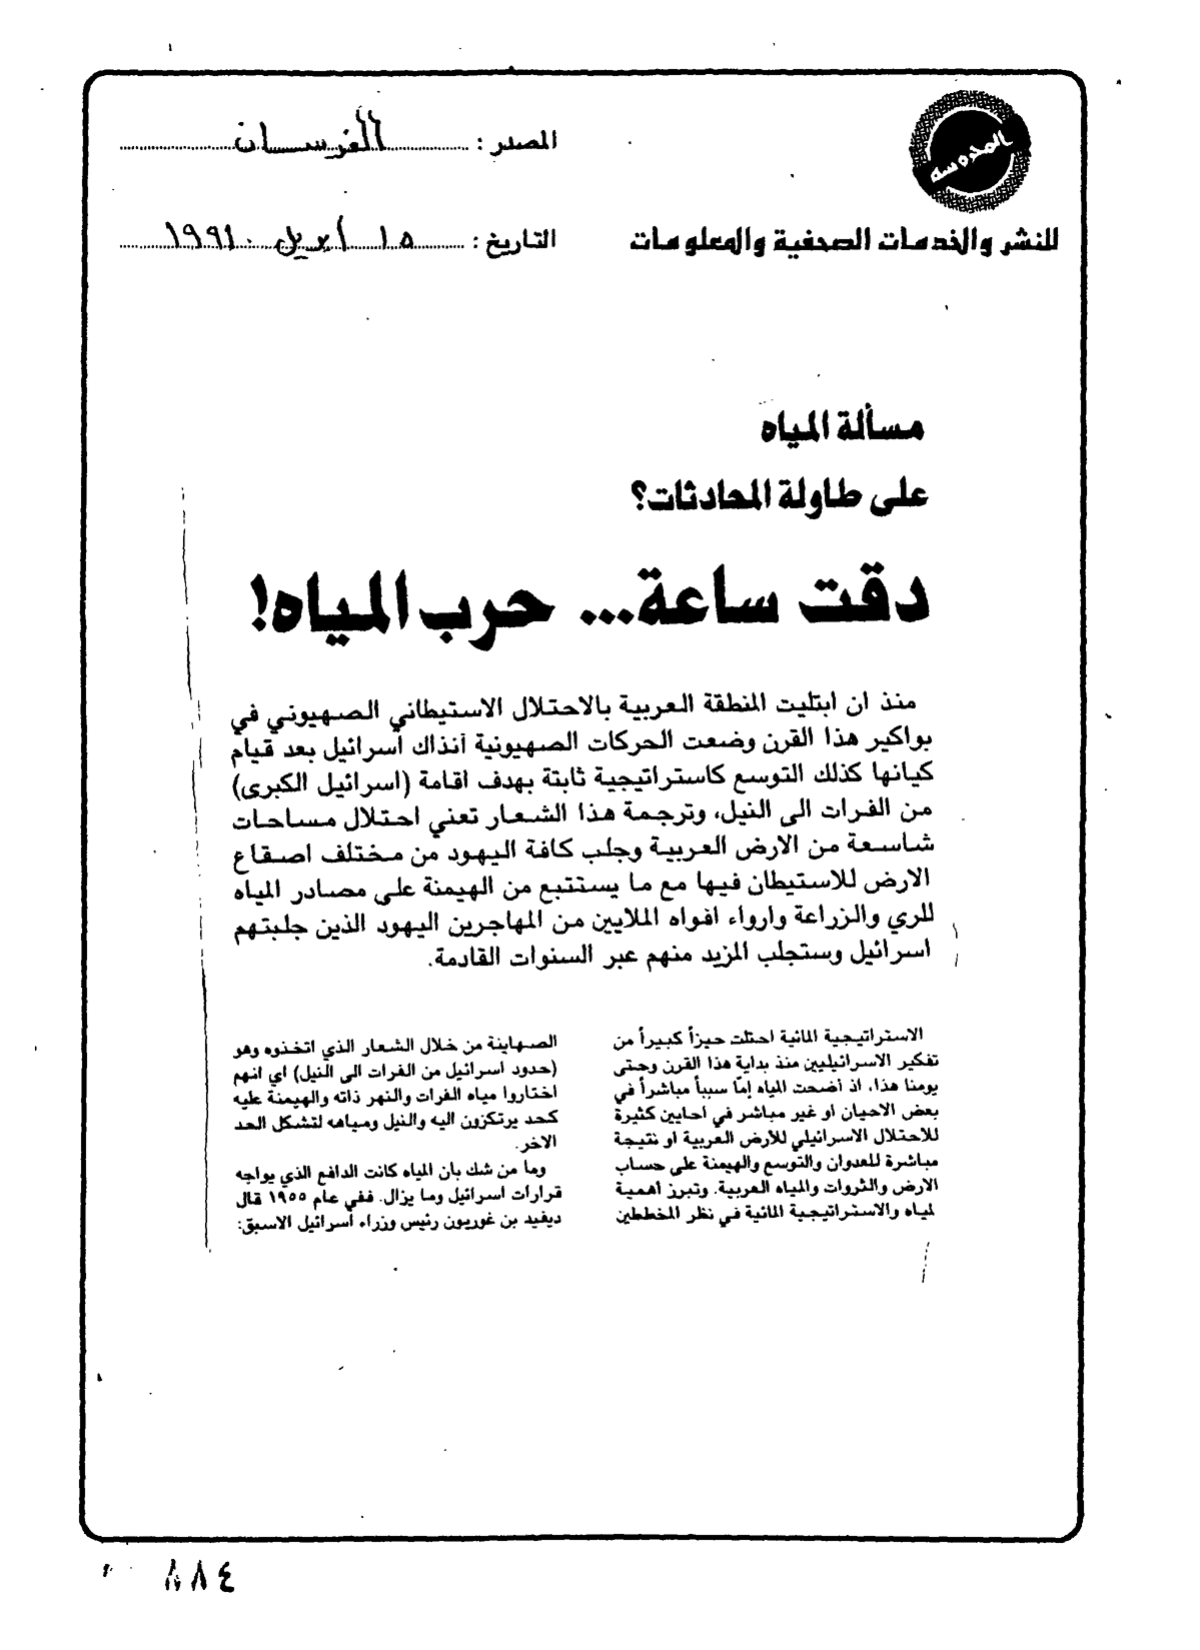 المحروسة
للنشر والخدمات الصحفية والمعلومات
المصدر : الفرسان
التاريخ : ١٥ أبريل ١٩٩١
مسألة المياه
على طاولة المحادثات؟
دقت ساعة... حرب المياه!
منذ ان ابتليت المنطقة العربية بالاحتلال الاستيطاني الصهيوني في
بواكير هذا القرن وضعت الحركات الصهيونية آنذاك اسرائيل بعد قيام
كيانها كذلك التوسع كاستراتيجية ثابتة بهدف اقامة (اسرائيل الكبرى)
من الفرات الى النيل، وترجمة هذا الشعار تعني احتلال مساحات
شاسعة من الارض العربية وجلب كافة اليهود من مختلف اصقاع
الارض للاستيطان فيها مع ما يستتبع من الهيمنة على مصادر المياه
للري والزراعة وارواء افواه الملايين من المهاجرين اليهود الذين جلبتهم
اسرائيل وستجلب المزيد منهم عبر السنوات القادمة.
الاستراتيجية المائية احتلت حيزاً كبيراً من
تفكير الاسرائيليين منذ بداية هذا القرن وحتى
يومنا هذا، اذ أضحت المياه إمّا سبباً مباشراً في
بعض الاحيان او غير مباشر في احايين كثيرة
للاحتلال الاسرائيلي للارض العربية او نتيجة
مباشرة للعدوان والتوسع والهيمنة على حساب
الارض والثروات والمياه العربية. وتبرز أهمية
لمياه والاستراتيجية المائية في نظر المخططين
الصهاينة من خلال الشعار الذي اتخذوه وهو
(حدود اسرائيل من الفرات الى النيل) اي انهم
اختاروا مياه الفرات والنهر ذاته والهيمنة عليه
كحد يرتكزون اليه والنيل ومياهه لتشكل الحد
الاخر.
وما من شك بان المياه كانت الدافع الذي يواجه
قرارات اسرائيل وما يزال. ففي عام ١٩٥٥ قال
ديفيد بن غوريون رئيس وزراء أسرائيل الاسبق:
٨٨٤